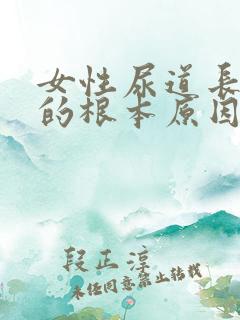 女性尿道長
的根本原因
段正淳
未经同意禁止转载